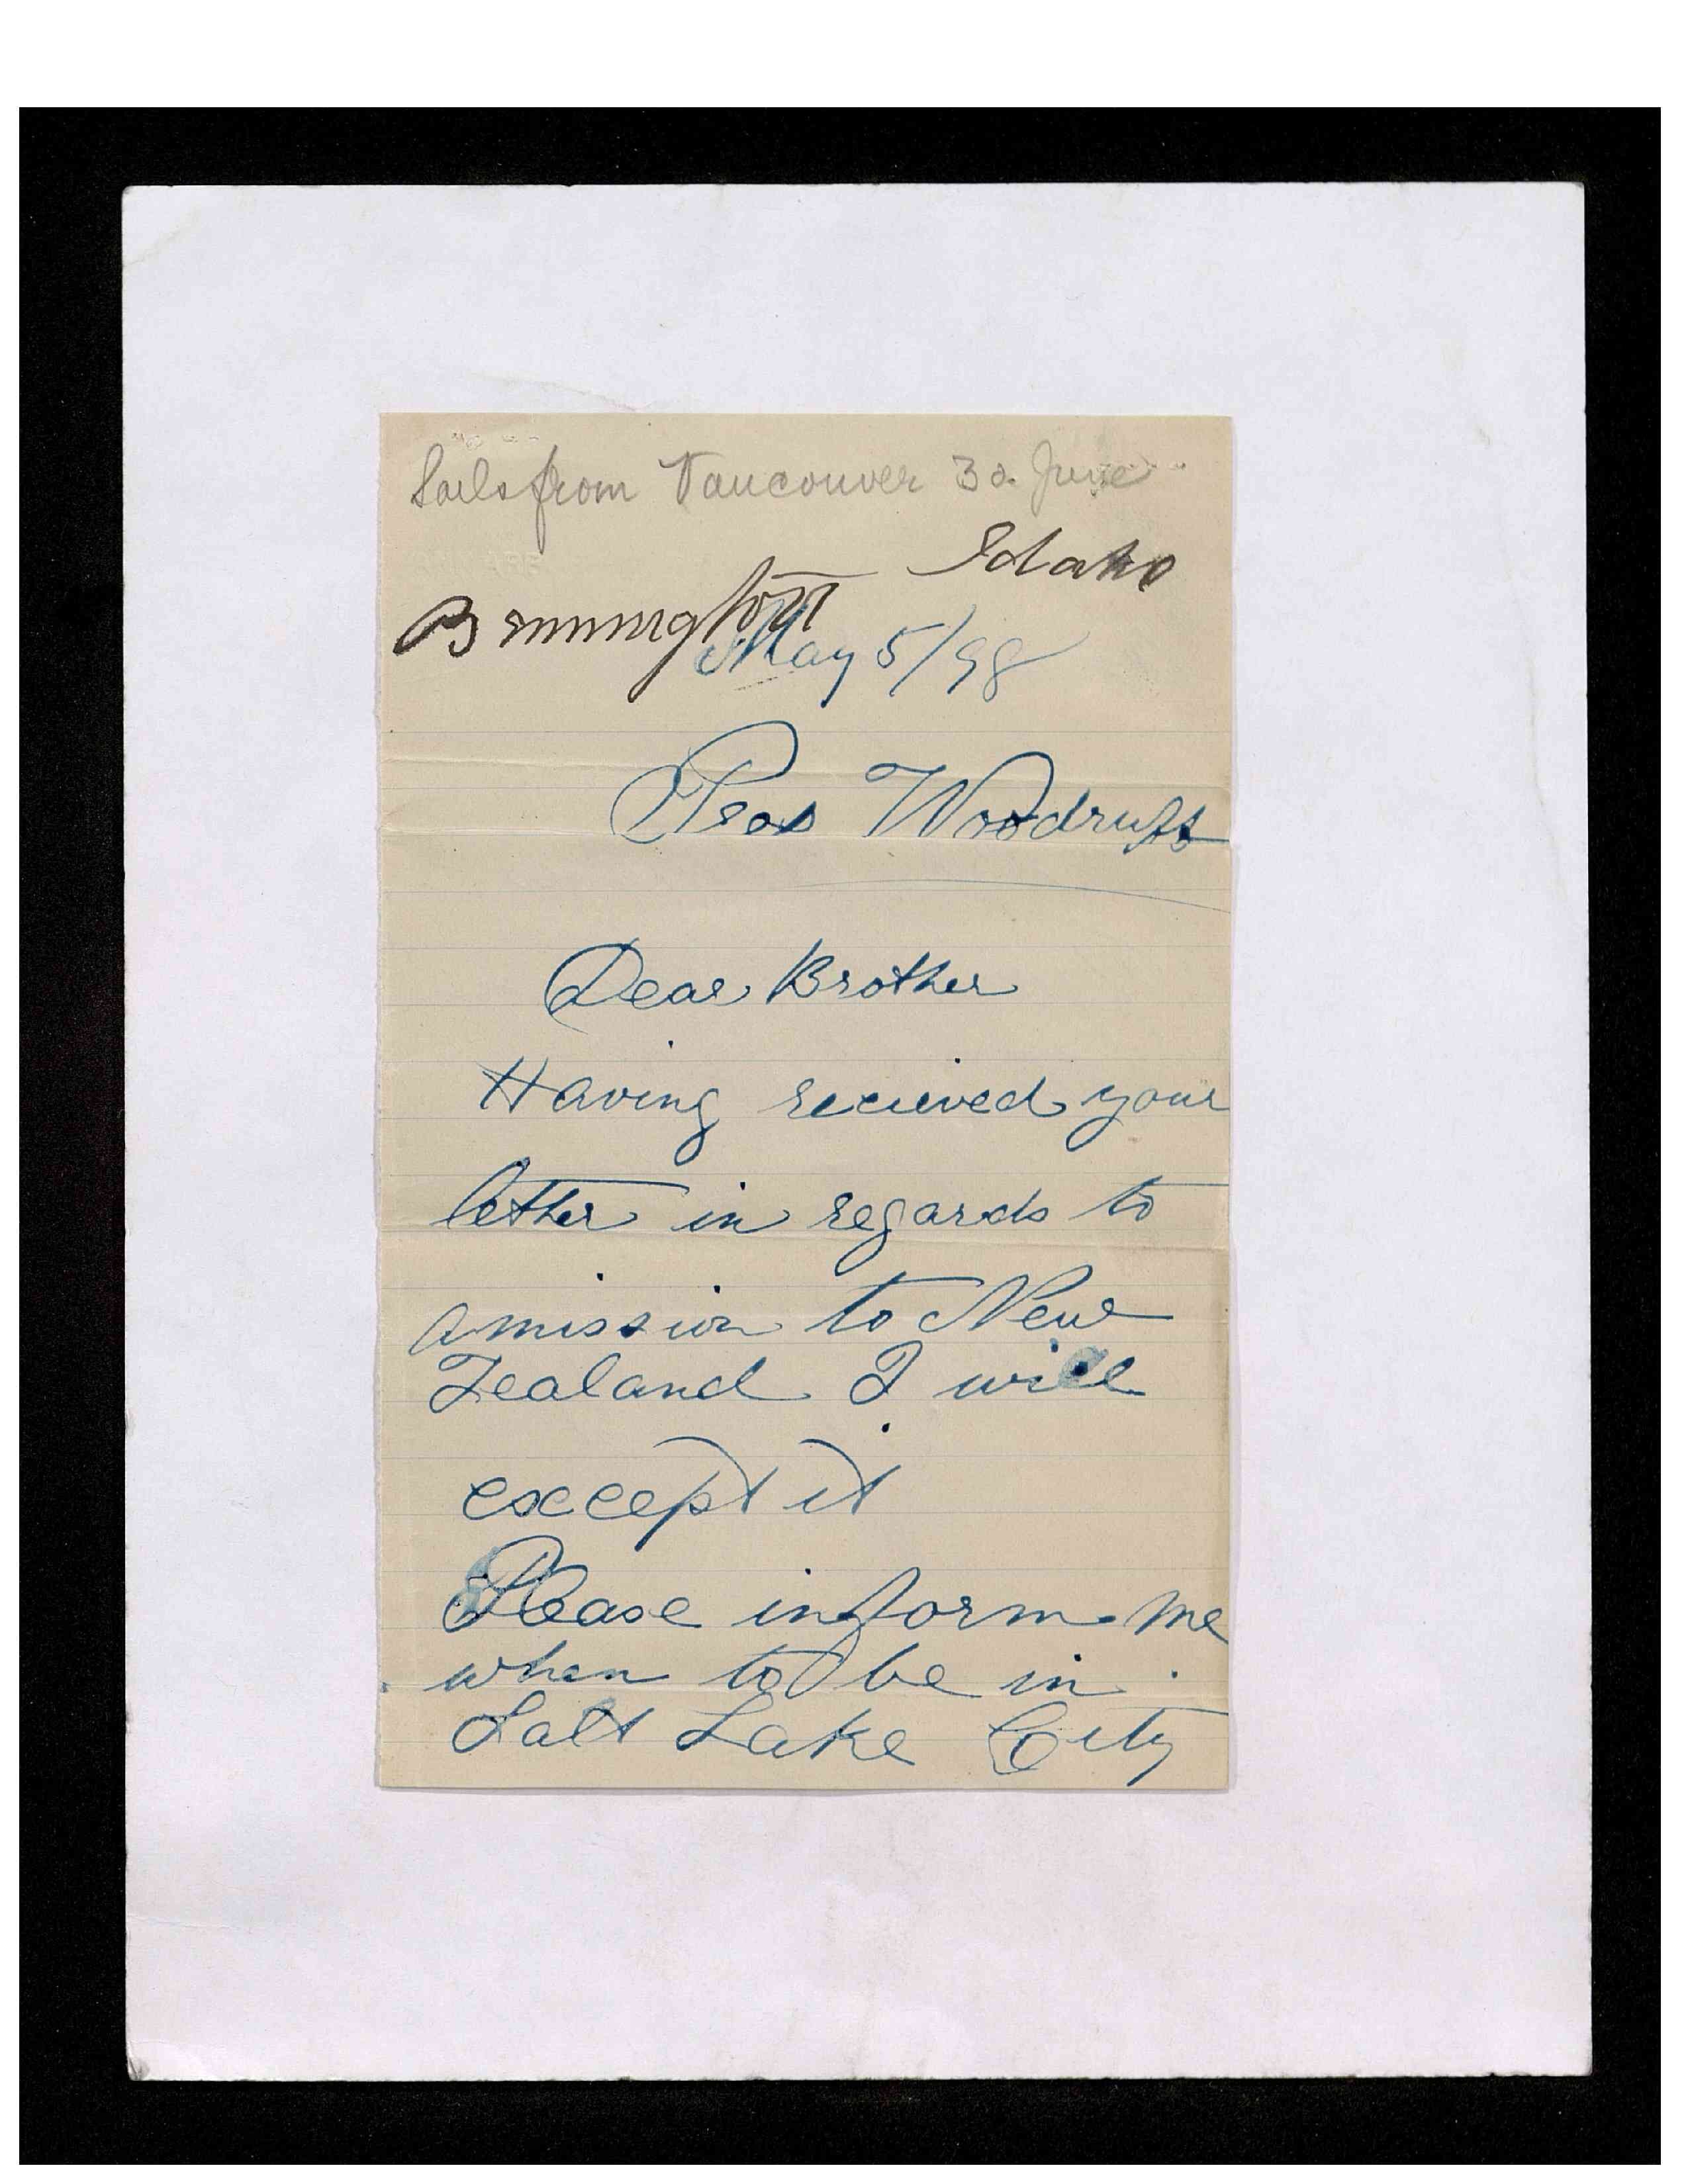 Sails from Vancouver 30. June
Idaho
Bennington
May 5/98
Pres Woodruff
Dear Brother
Having recieved your
letter in regards to
a mission to New
Zealand I will
except it
Please inform me
when to be in
Salt Lake City